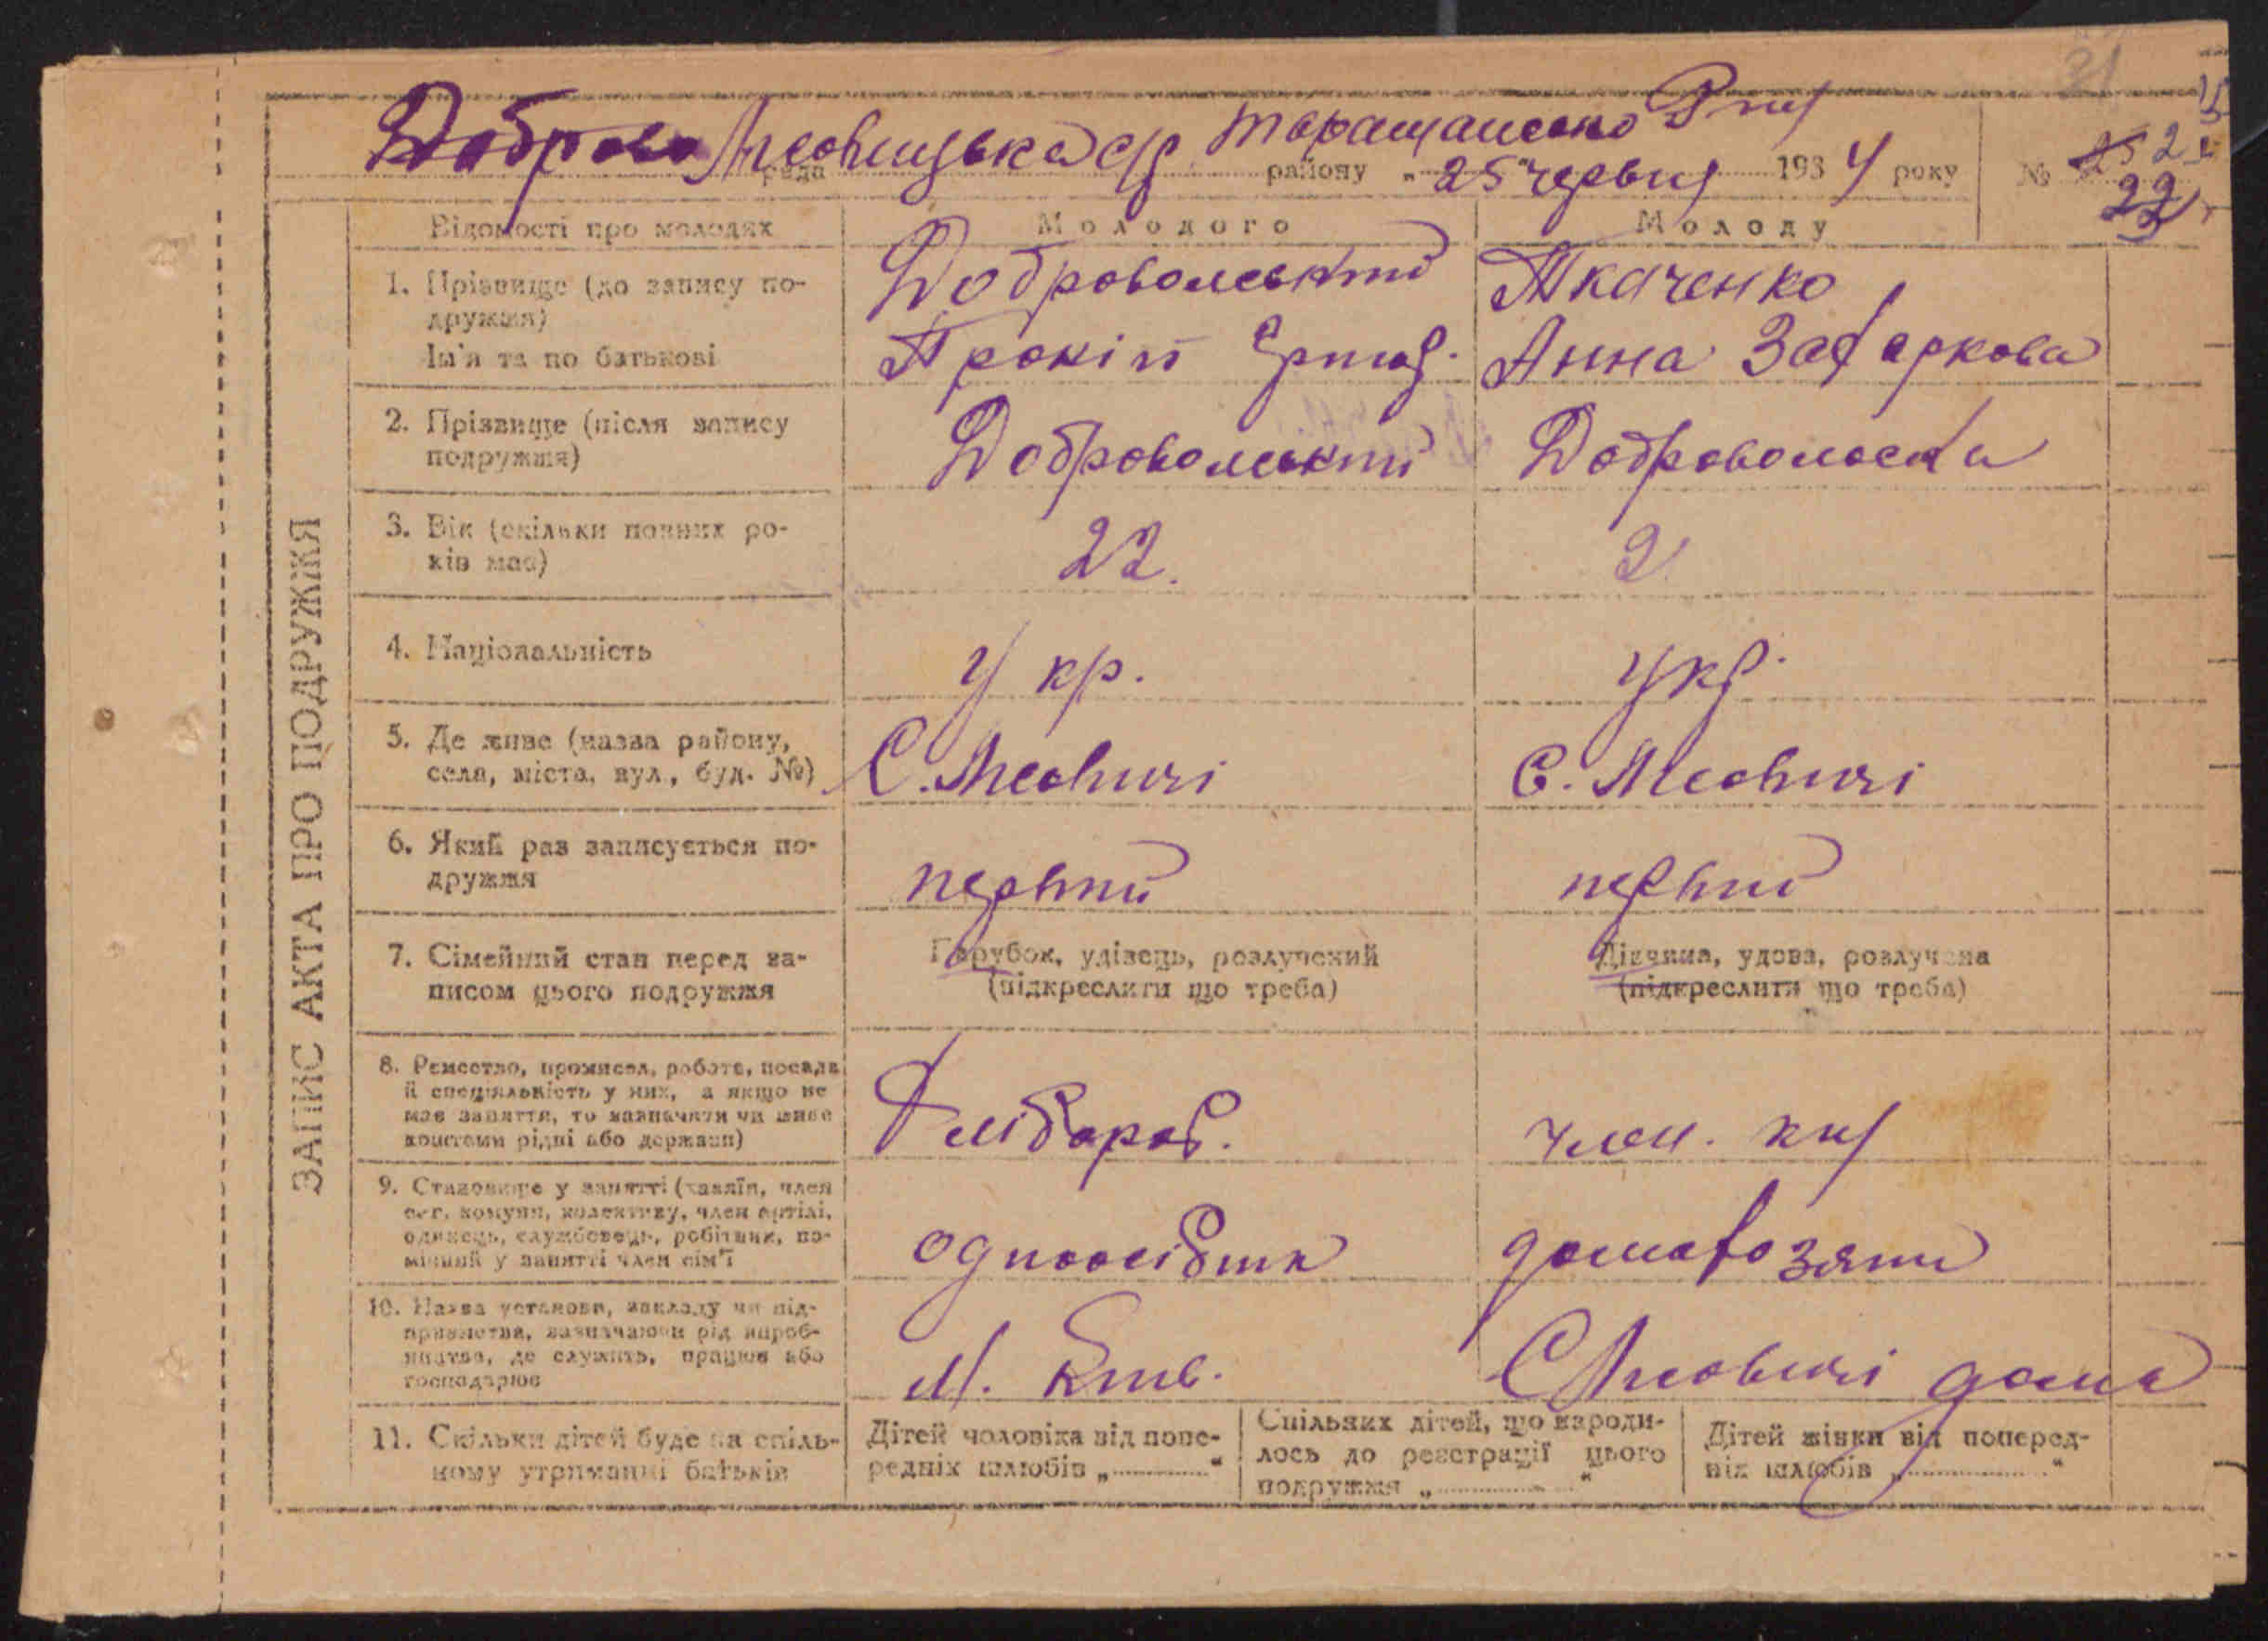 31
Лісовицька с/р Таращанського Рну
рада району „25" червня 1934 року № 22
Відомості про молодих Молодого Молоду
1. Прізвище (до запису по-
дружжя) Добровольський Ткаченко
Ім'я та по батькові Прокіп Анна
2. Прізвище (після запису
подружжя) Добровольський Добровольска
3. Вік (скільки повних ро-
ків має) 22.
4. Національність Укр. Укр.
5. Де живе (назва району,
села, міста, вул., буд. №) С. Лісовичі С. Лісовичі
6. Який раз записується по-
дружжя первий первий
7. Сімейний стан перед за-
писом цього подружжя
Парубок, удівець, розлучений
(підкреслити що треба)
Дівчина, удова, розлучена
(підкреслити що треба)
8. Ремество, промисел, робота, посада
й спеціяльність у них, а якщо не
має заняття, то зазначити чи живе
коштами рідні або держави) Хлібороб. член.
9. Становище у занятті (хазяїн, член
с.-г. комуни, колективу, член артілі,
одинець, службовець, робітник, по-
мічний у занятті член сім'ї одноосібник домохозяйн
10. Назва установи, закладу чи під-
приємства, зазначаючи рід вироб-
ництва, де служить, працює або
господарює С Лісовичі дома
11. Скільки дітей буде на спіль-
ному утриманні батьків
Дітей чоловіка від попе-
редніх шлюбів „ "
Спільних дітей, що народи-
лось до реєстрації цього
подружжя „ "
Дітей жінки від поперед-
ніх шлюбів „ "
ЗАПИС АКТА ПРО ПОДРУЖЖЯ